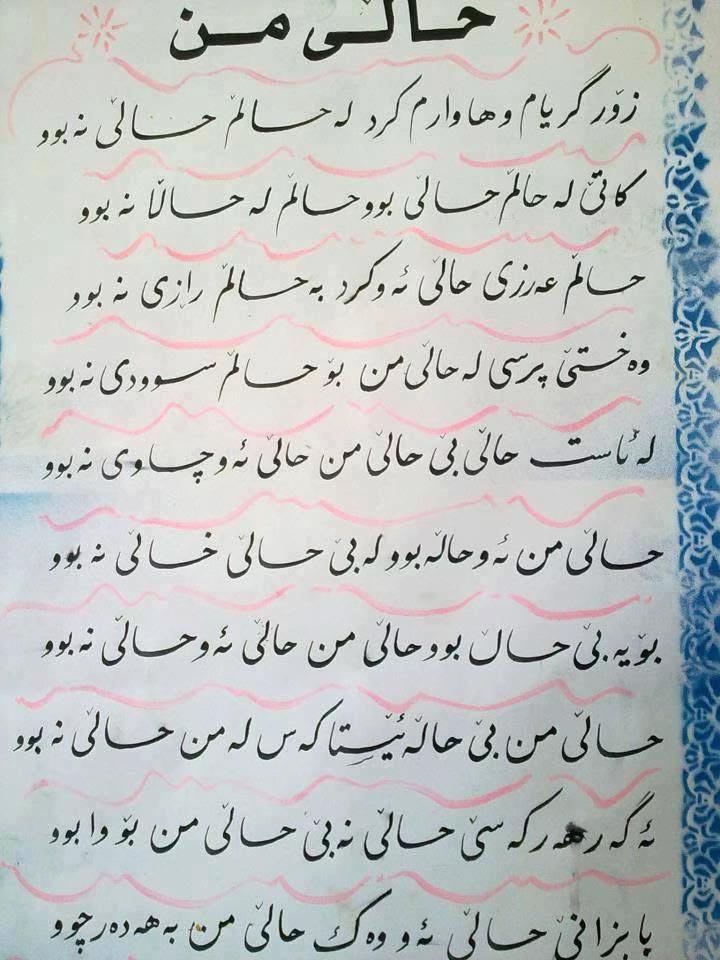 حاڵی من
زۆر گریام وهاوارم کرد لە حاڵم حاڵی نەبوو
کاتێ لە حاڵم حاڵی بوو حاڵم لە حاڵا نەبوو
حاڵم عەرزی حاڵی ئەو کرد بە حاڵم رازی نەبوو
وەختێ پرسی لە حاڵی من بۆ حاڵم سوودی نەبوو
لە ئاست حاڵی بێ حاڵی من حاڵی ئەو چاوی نەبوو
حاڵی من ئەو حاڵە بوو لە بێ حاڵی خاڵی نەبوو
بۆیە بێ حاڵ بوو حاڵی من حاڵی ئەو حاڵی نەبوو
حاڵی من بێ حاڵە ئێستا کەس لە من حاڵی نەبوو
ئەگەر هەر کەسێ حاڵی نەبێ حاڵی من بۆ وابوو
با بزانێ حاڵی ئەو وەک حاڵی من بە هەدەر چوو